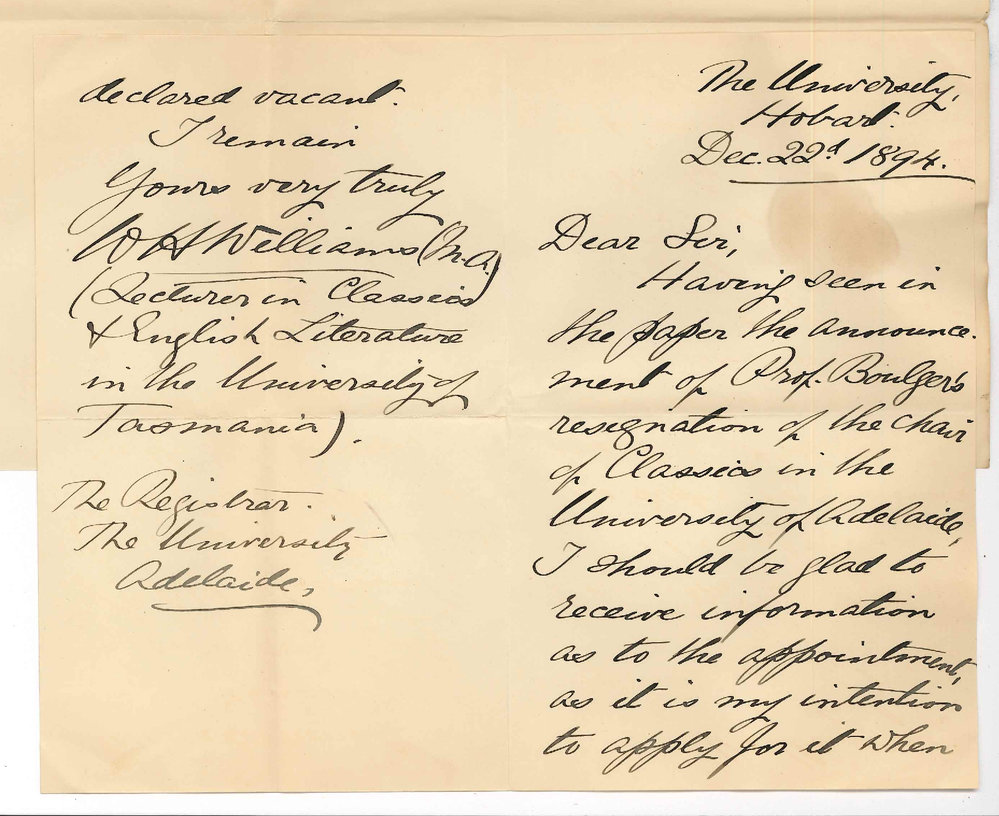 The University,
Hobart.
Dec. 22d 1894.
Dear Sir,
Having seen in
the paper the announce-
ment of Prof. Boulger's
resignation of the chair
of Classics in the
University of Adelaide,
I should be glad to
receive information
as to the appointment,
as it is my intention
to apply for it when
declared vacant.
I remain
Yours very truly
W H Williams (M.A.)
(Lecturer in Classics
& English Literature
in the University of
Tasmania).
The Registrar.
The University
Adelaide,